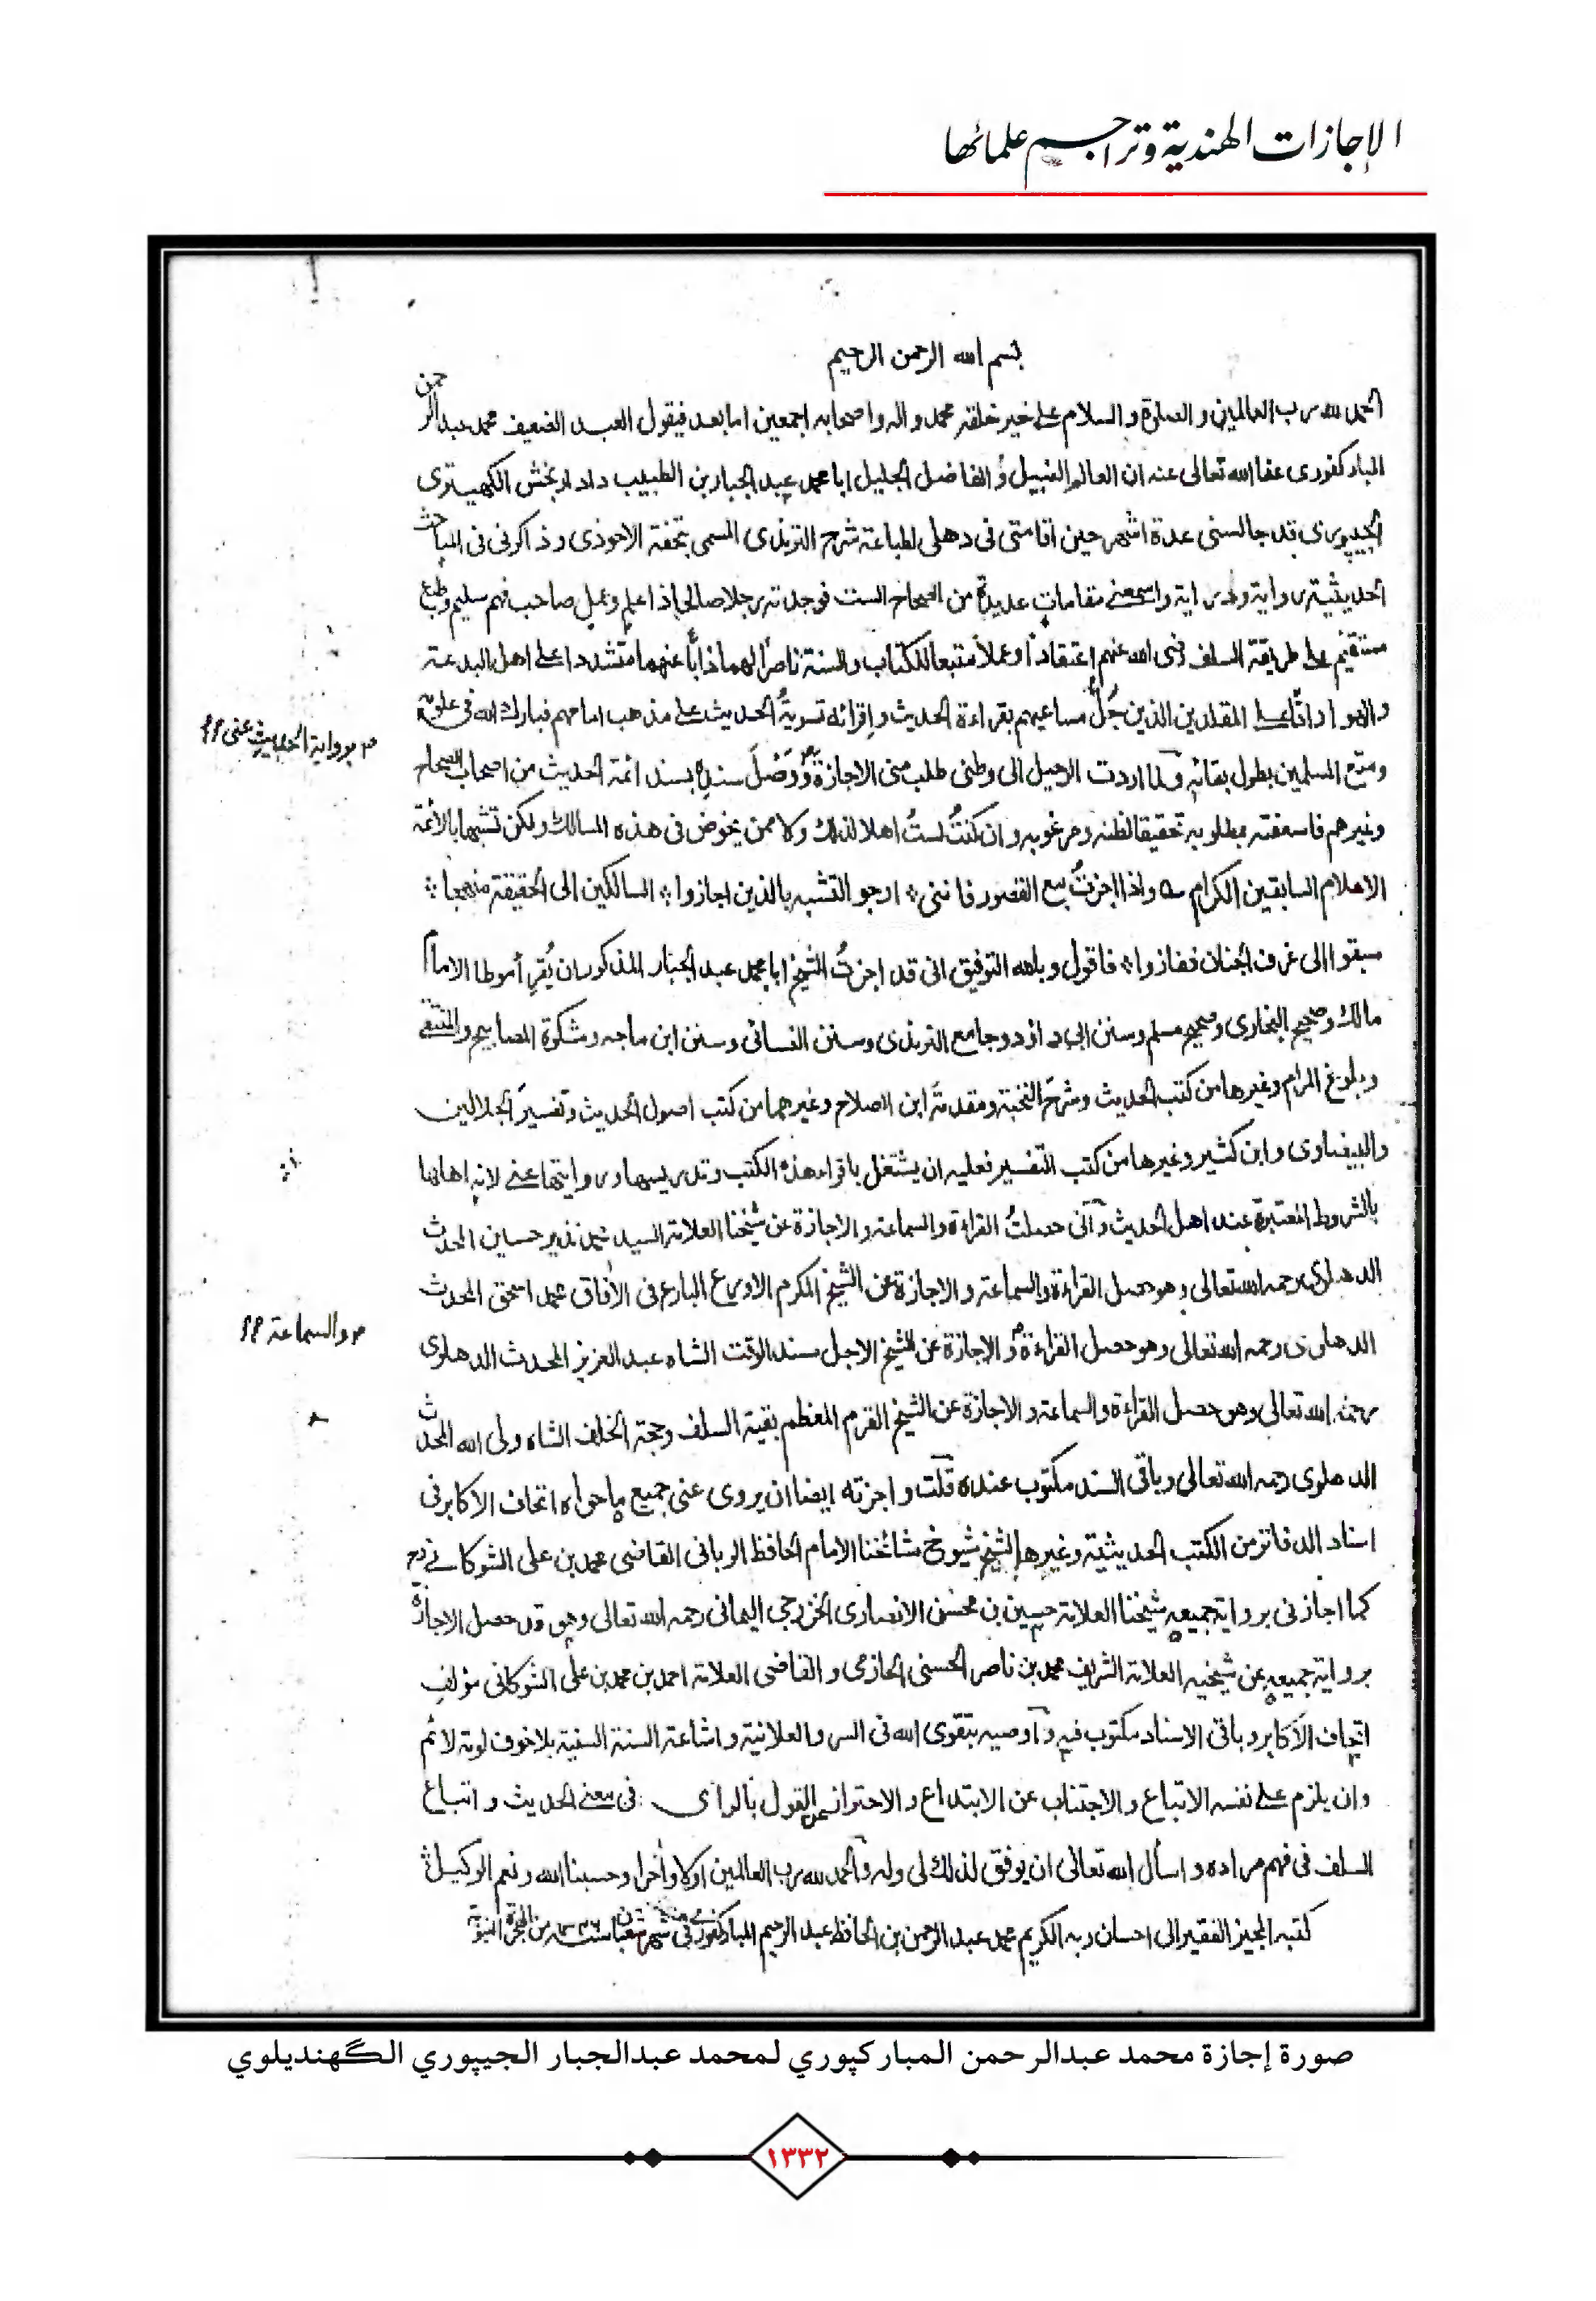 الإجازات الهندية وتراجم علمائها
بسم الله الرحمن الرحيم
الحمد لله رب العالمين والصلوة والسلام على خير خلقه محمد واله واصحابه اجمعين اما بعد فيقول العبد الضعيف محمد عبد الرحمن
المباركفوري عفا الله تعالى عنه ان العالم النبيل والفاضل الجليل ابا محمد عبد الجبار بن الطبيب دادار بخش الكهنديلوي
الجيپوري قد جالسني عدة اشهر حين اقامتي في دهلي لطباعة شرح الترمذي المسمى بتحفة الاحوذي وذاكرني في المباحث
الحديثية رواية ودراية واسمعني مقامات عديدة من الصحاح الست فوجدته رجلا صالحا ذا علم وعمل صاحب فهم سليم وطبع
مستقيم على طريقة السلف رضى الله عنهم اعتقادا وعملا متبعا للكتاب والسنة ناصرا لهما ذابا عنهما متشددا على اهل البدعة
والاهواء رادّا على المقلدين الذين جُلُّ مساعيهم بقراءة الحديث وإقرائه تسوية الحديث على مذهب امامهم فبارك الله في علومه
ومتع المسلمين بطول بقائه ولما اردت الرحيل الى وطني طلب مني الاجازة ووَصْلَ سنده بسند ائمة الحديث من اصحاب الصحاح
م برواية الحديث عني ١٢
وغيرهم فاسعفته بمطلوبه تحقيقا لظنه ومرغوبه وان كنتُ لستُ اهلا لذلك ولا ممن يخوض في هذه المسالك ولكن تشبها بالأئمة
الاعلام السابقين الكرام واذا اجزتُ مع القصور فانني ؞ ارجو التشبه بالذين اجازوا ؞ السالكين الى الحقيقة منهجا ؞
سبقوا الى غرف الجنان ففازوا ؞ فاقول وبالله التوفيق اني قد اجزتُ الشيخ ابا محمد عبد الجبار المذكور ان يُقرِأ موطا الامام
مالك وصحيح البخاري وصحيح مسلم وسنن ابي داؤد وجامع الترمذي وسنن النسائي وسنن ابن ماجه ومشكوة المصابيح والمنتقى
وبلوغ المرام وغيرها من كتب الحديث وشرحَ النخبة ومقدمةَ ابن الصلاح وغيرهما من كتب اصول الحديث وتفسيرَ الجلالين
والبيضاوي وابن كثير وغيرها من كتب التفسير فعليه ان يشتغل باقراء هذه الكتب وتدريسها وروايتها عني لانه اهلها
بالشروط المعتبرة عند اهل الحديث واني حصلتُ القراءة والسماعة والاجازة عن شيخنا العلامة السيد محمد نذير حسين المحدث
الدهلوي رحمه الله تعالى وهو حصل القراءة والسماعة والاجازة عن الشيخ المكرم الاورع البارع في الآفاق محمد اسحق المحدث
الدهلوي رحمه الله تعالى وهو حصل القراءة والاجازة عن الشيخ الاجل مسند الوقت الشاه عبد العزيز المحدث الدهلوي
م والسماعة ١٢
رحمه الله تعالى وهو حصل القراءة والسماعة والاجازة عن الشيخ القرم المعظم بقية السلف وحجة الخلف الشاه ولي الله المحدث
الدهلوي رحمه الله تعالى وباقي السند مكتوب عنده قلت واجزته ايضا ان يروي عني جميع ما حواه اتحاف الاكابر في
اسناد الدفاتر من الكتب الحديثية وغيرها لشيخ شيوخ مشائخنا الامام الحافظ الرباني القاضي محمد بن علي الشوكاني رح
كما اجازني برواية جميعه شيخنا العلامة حسين بن محسن الانصاري الخزرجي اليماني رحمه الله تعالى وهو قد حصل الاجازة
برواية جميعه عن شيخيه العلامة الشريف محمد بن ناصر الحسني الحازمي والقاضي العلامة احمد بن محمد بن علي الشوكاني مؤلف
اتحاف الاكابر وباقي الاسناد مكتوب فيه واوصيه بتقوى الله في السر والعلانية واشاعة السنة السنية بلا خوف لومة لائم
وان يلزم على نفسه الاتباع والاجتناب عن الابتداع والاحتراز عن القول بالراى في معنى الحديث واتباع
السلف في فهم مراده واسأل الله تعالى ان يوفق لذلك لي وله والحمد لله رب العالمين اولا وآخرا وحسبنا الله ونعم الوكيل
كتبه المجيز الفقير الى احسان ربه الكريم محمد عبد الرحمن بن الحافظ عبد الرحيم المباركفوري في شهر شعبان سنة من الهجرة النبوية
صورة إجازة محمد عبدالرحمن المباركپوري لمحمد عبدالجبار الجيپوري الگهنديلوي
١٣٣٢